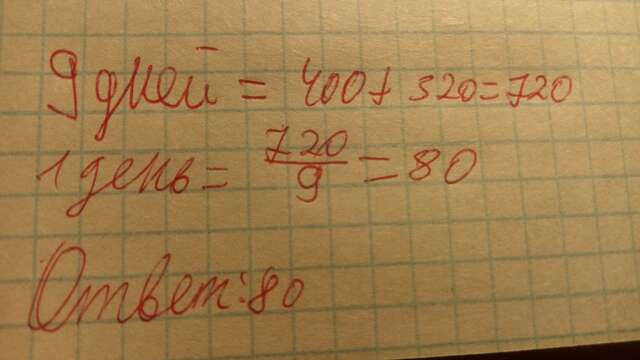 9 дней = 400+ 320=720
1 день = 720/9 = 80
Ответ: 80